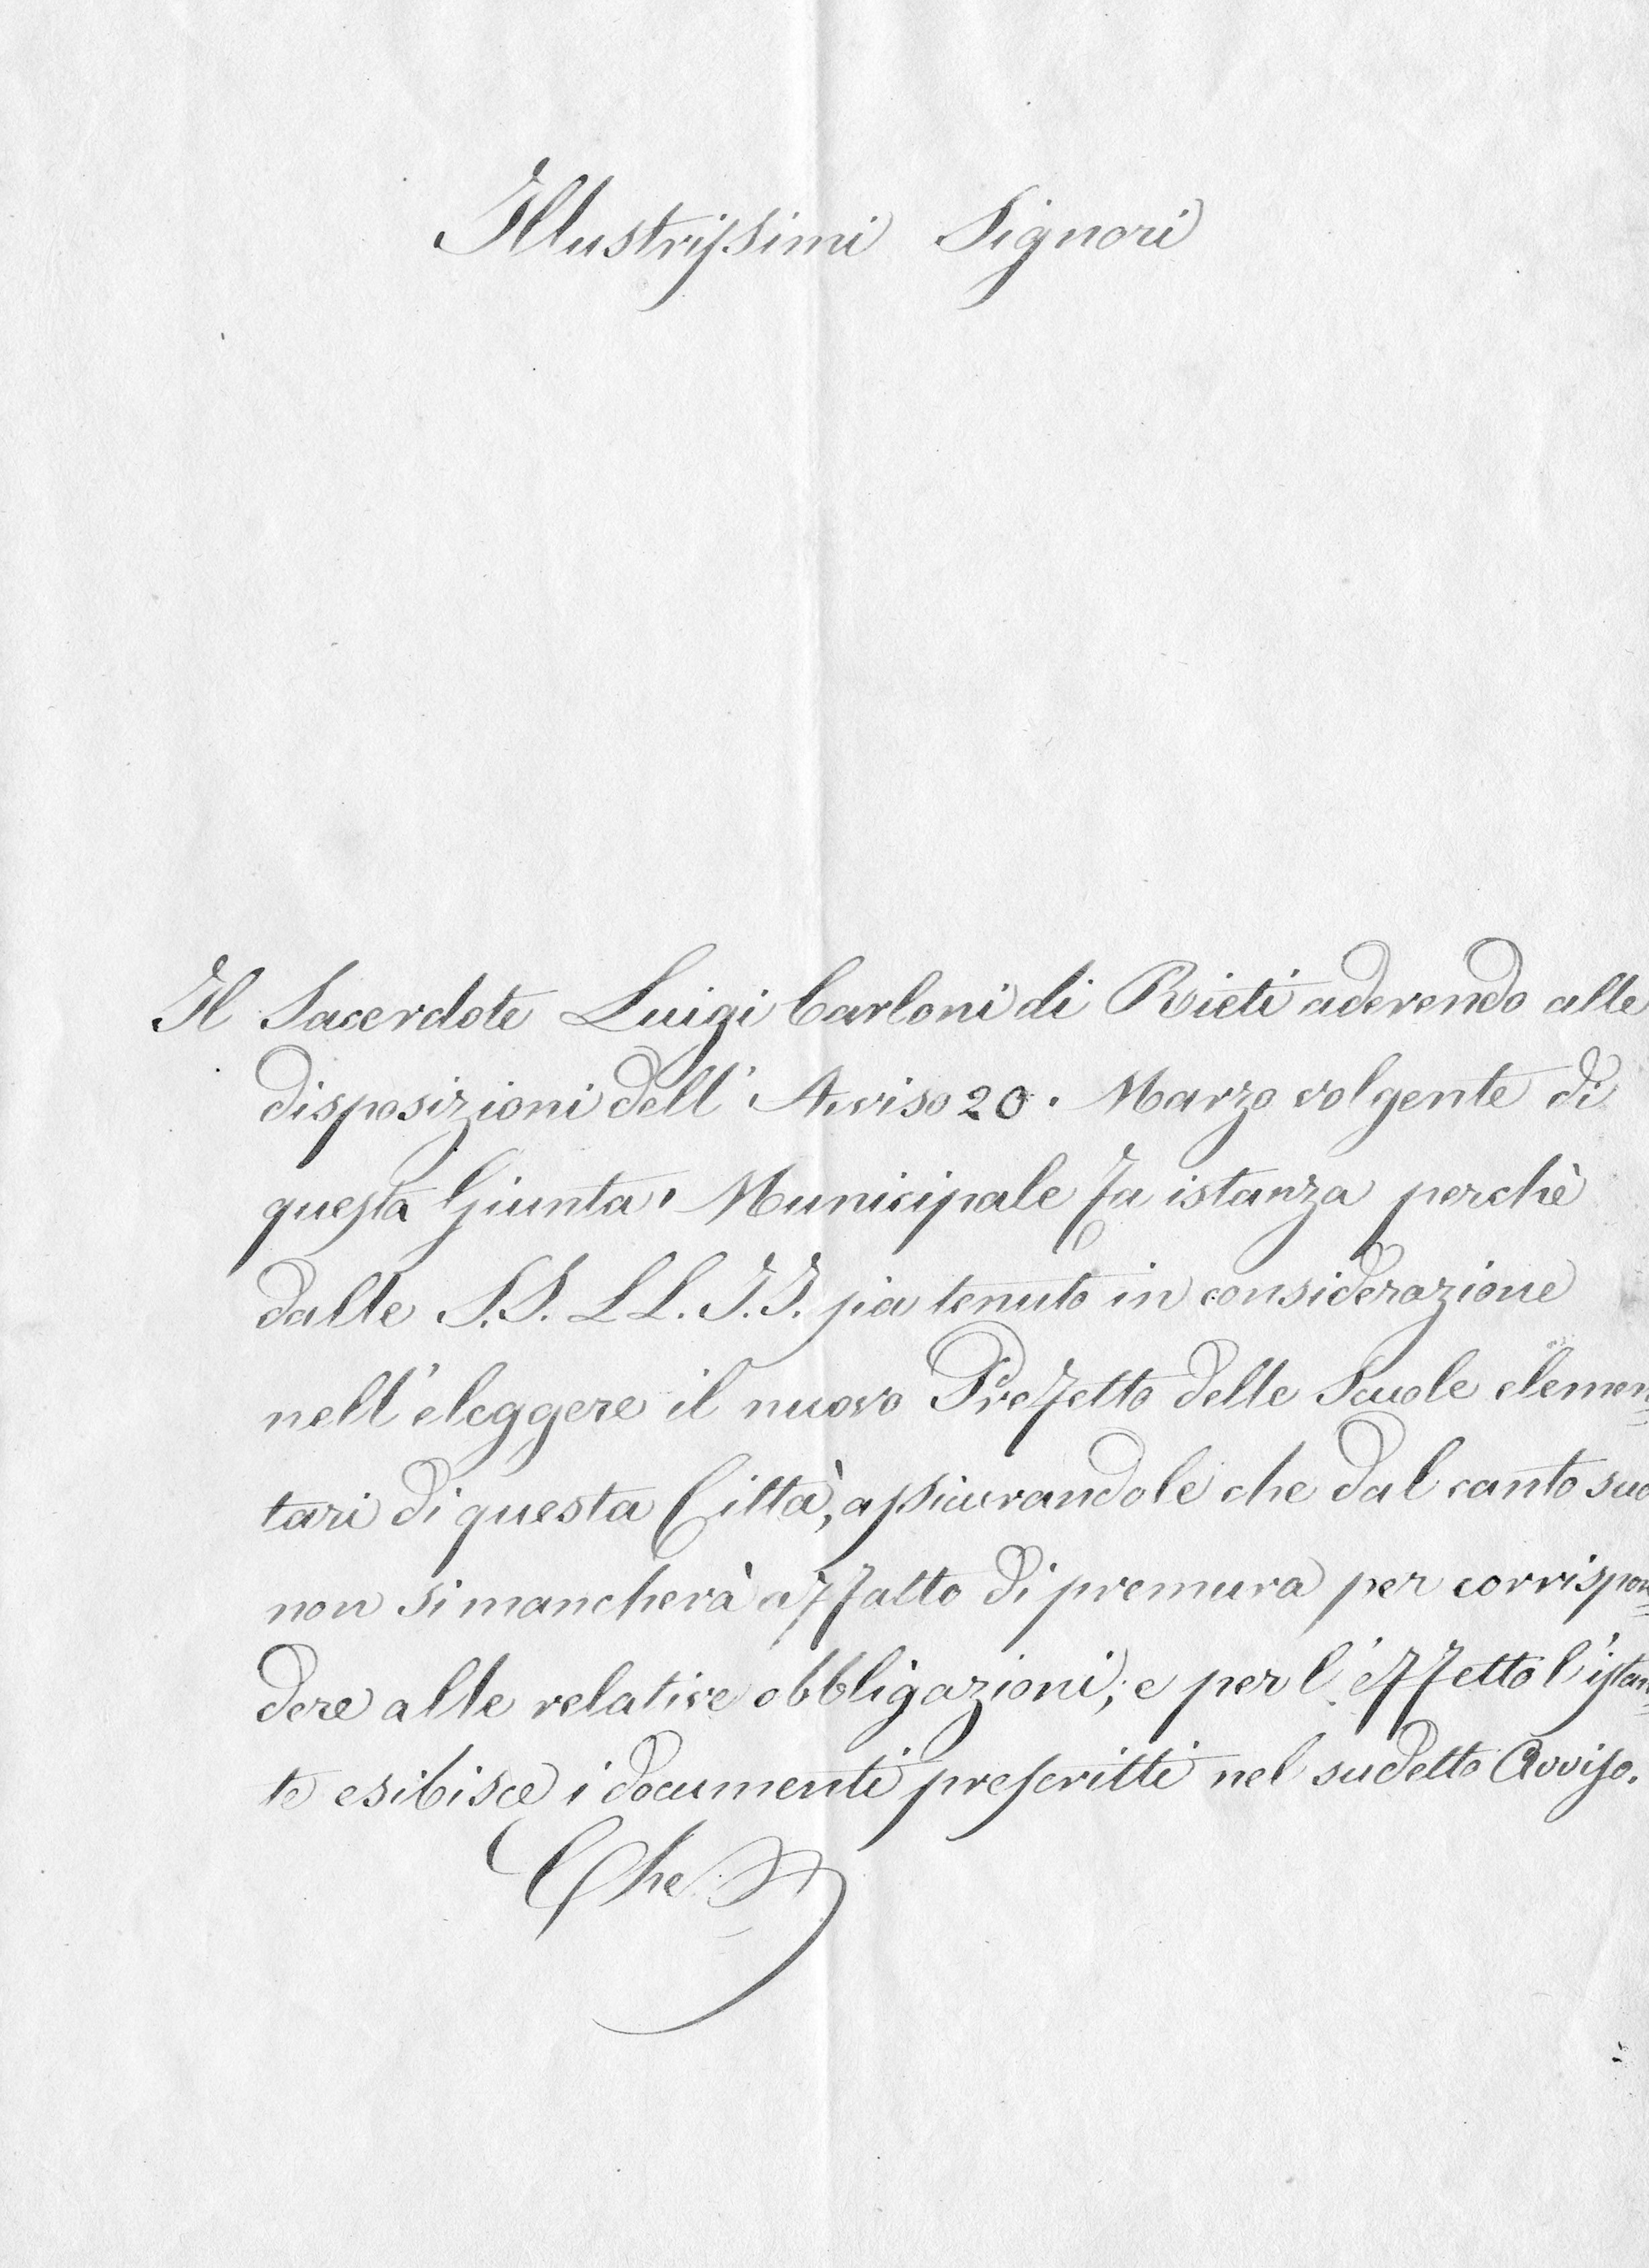 Illustrissimi Signori
Il Sacerdote Luigi Carloni di Rieti aderendo alle
disposizioni dell' Avviso 20. Marzo volgente di
questa Giunta Municipale fa istanza perchè
dalle S.S. LL. I.I. sia tenuto in considerazione
nell'eleggere il nuovo Prefetto delle Scuole elemen=
tari di questa Città, assicurandole che dal canto suo
non si mancherà affatto di premura per corrispon=
dere alle relative obbligazioni; e per l'effetto l'istan=
te esibisce i documenti prescritti nel sudetto Avviso.
Che